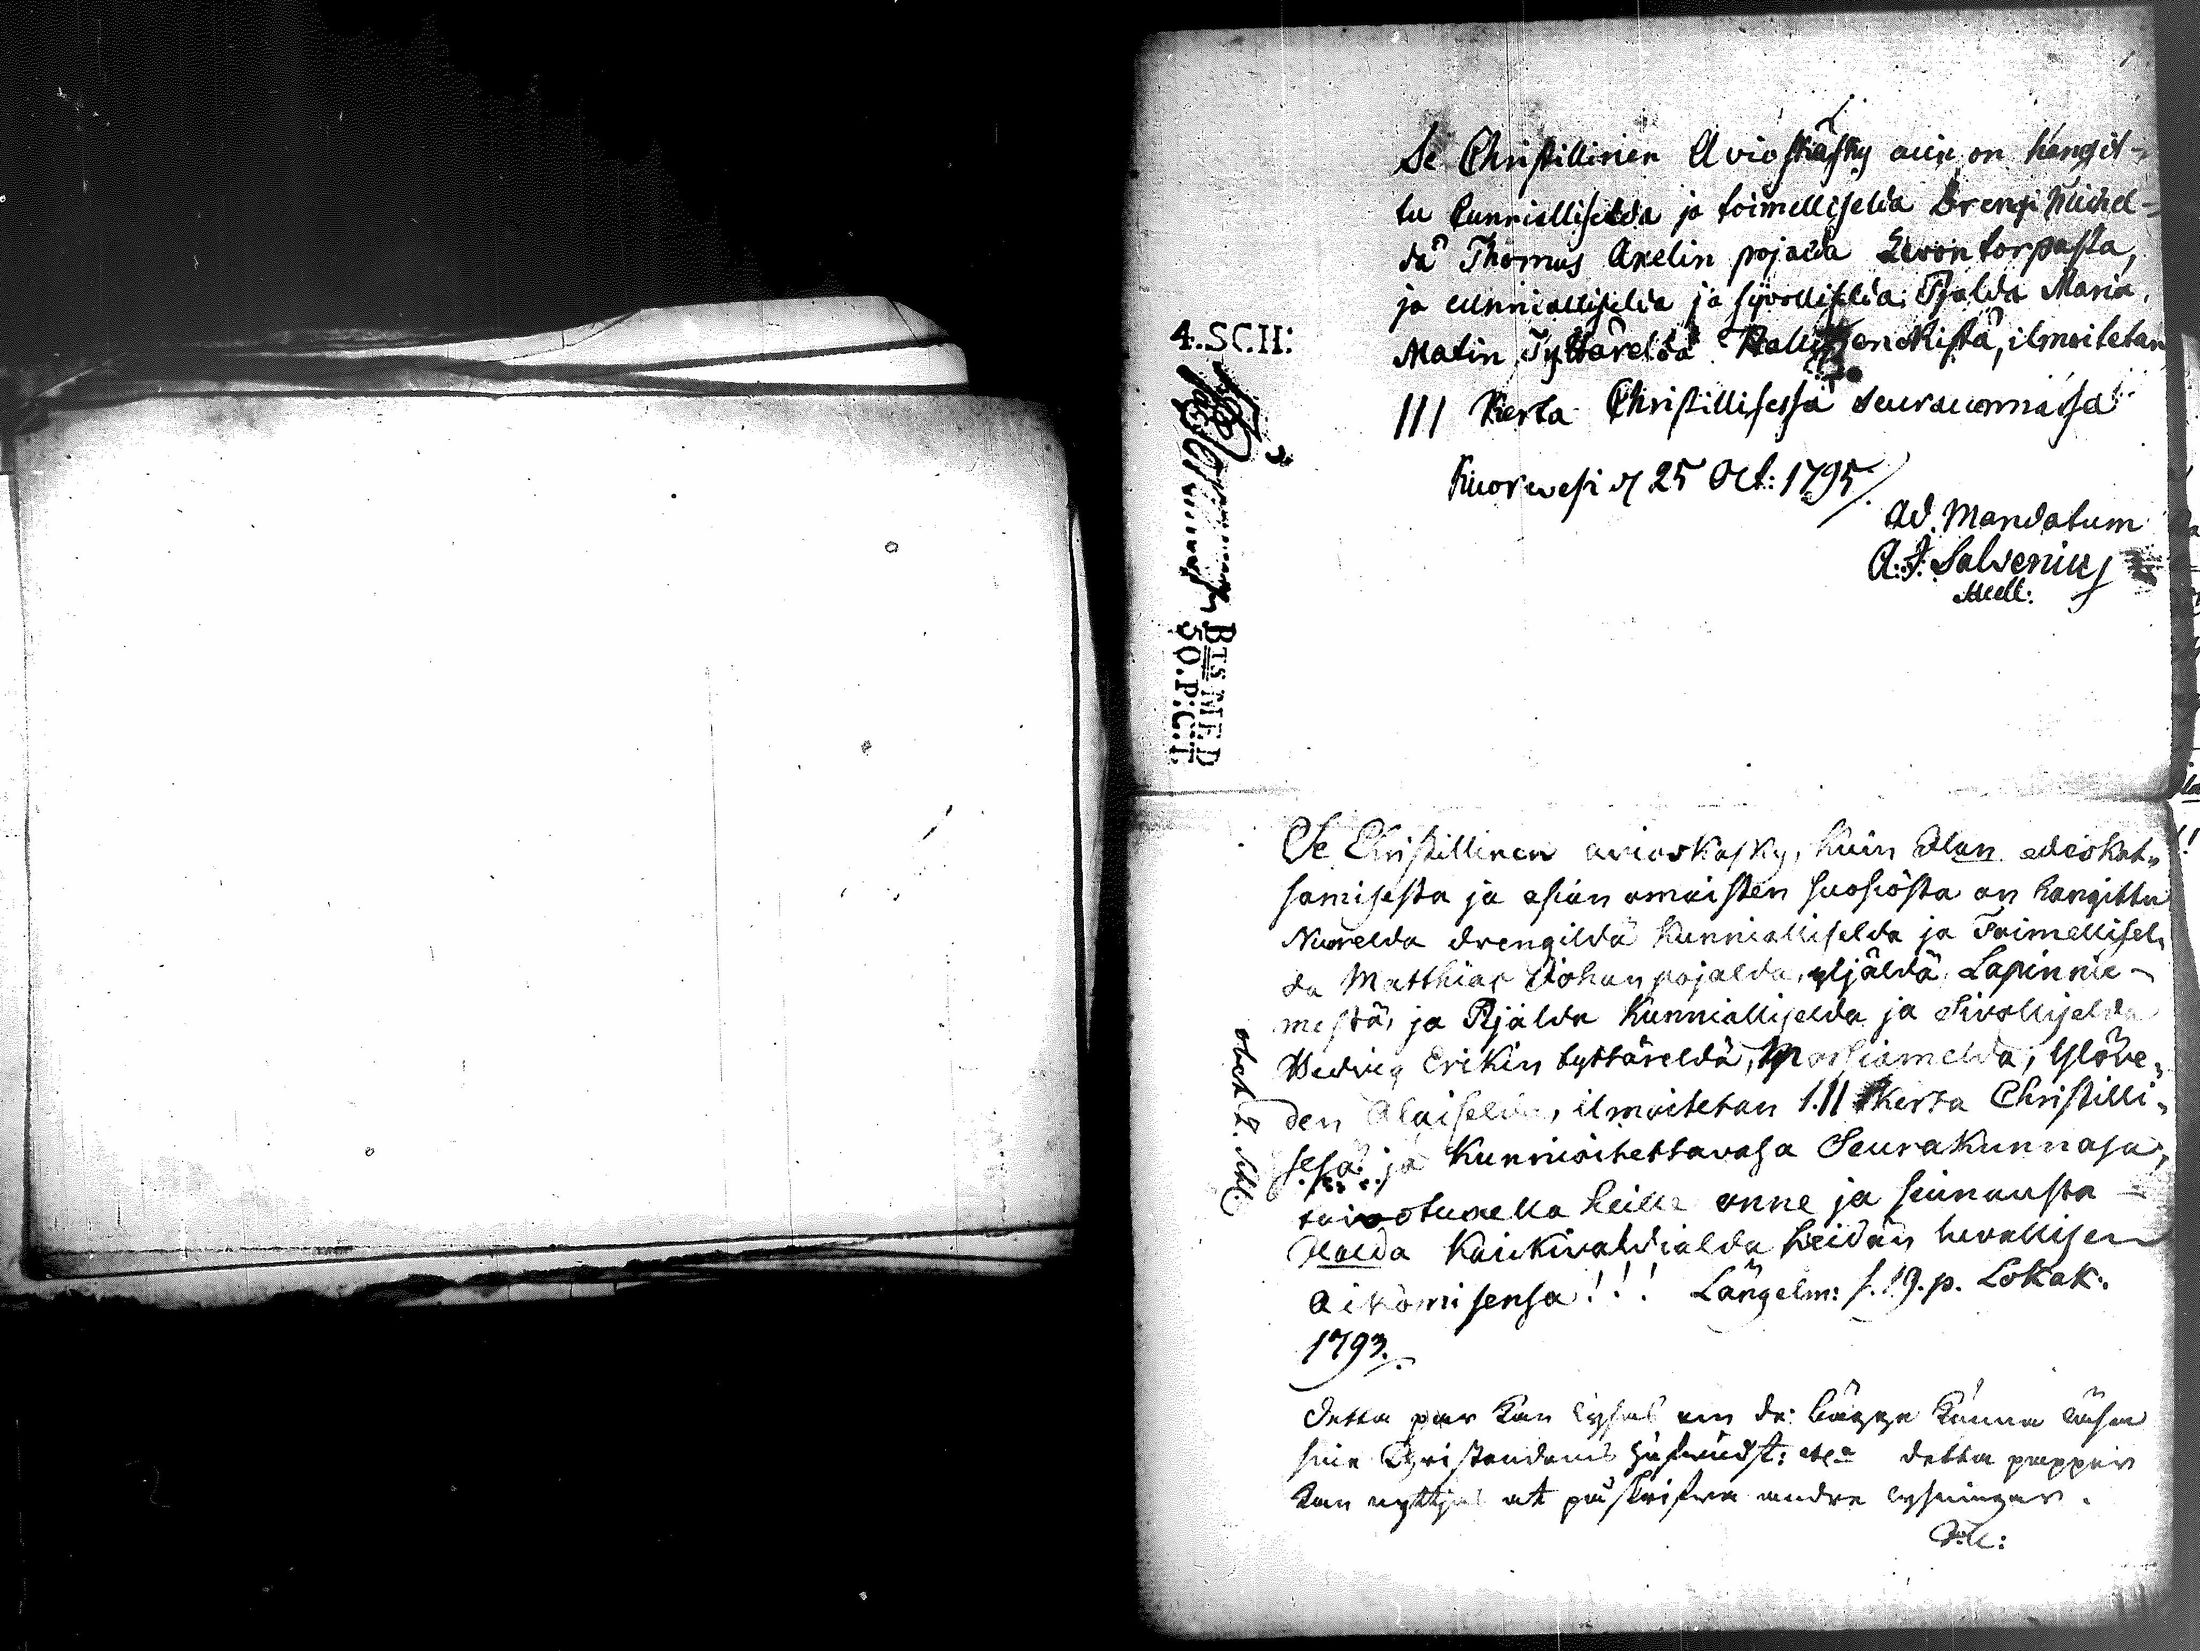 Se Christillinen Avioskäsky cuin on hangit-
tu Cunnialliselda ja toimelliselda Drengi Michel-
dä Thomas Axelin pojalda Eevon torpasta,
ja cunnialliselda ja syvolliselda Pjalda Maria
Matin Tyttäreldä, ilmoitetan
III Kerta Christillisessä seuracunnassa
Kuorwesi d 25 Oct: 1795
Ad. Mandatum
A. J. Salvenius
4.SCH:
BTS MED
50.P:C:T.
Se Christillinen avioskäsky, kuin Alun edeskat-
somisesta ja asian omaisten suosiosta on hangittu
Nuorelda drengildä Kunnialliselda ja Toimellisel-
da Matthias Johan pojalda, yljäldä, Lapinnie-
mestä, ja Pjalda Kunnialliselda ja Sivolliselda
Hedvig Erikin tyttäreldä, Morsiamelda, Ylöve-
den, ilmoitetan 1.11 Kerta Christilli-
sesä ja Kunnioitettavasa Seurakunnasa,
toivotuxella heille onne ja siunausta
Kaickivaldialda heidän luvallisen
Aikomisensa!!! Längelm: s. 19. p. Lokak:
1793.
Detta par kan lysas om de bägge kunna läsa
sine Christendoms detta papper
kan nyttjas at påskrifva andra lysningar.